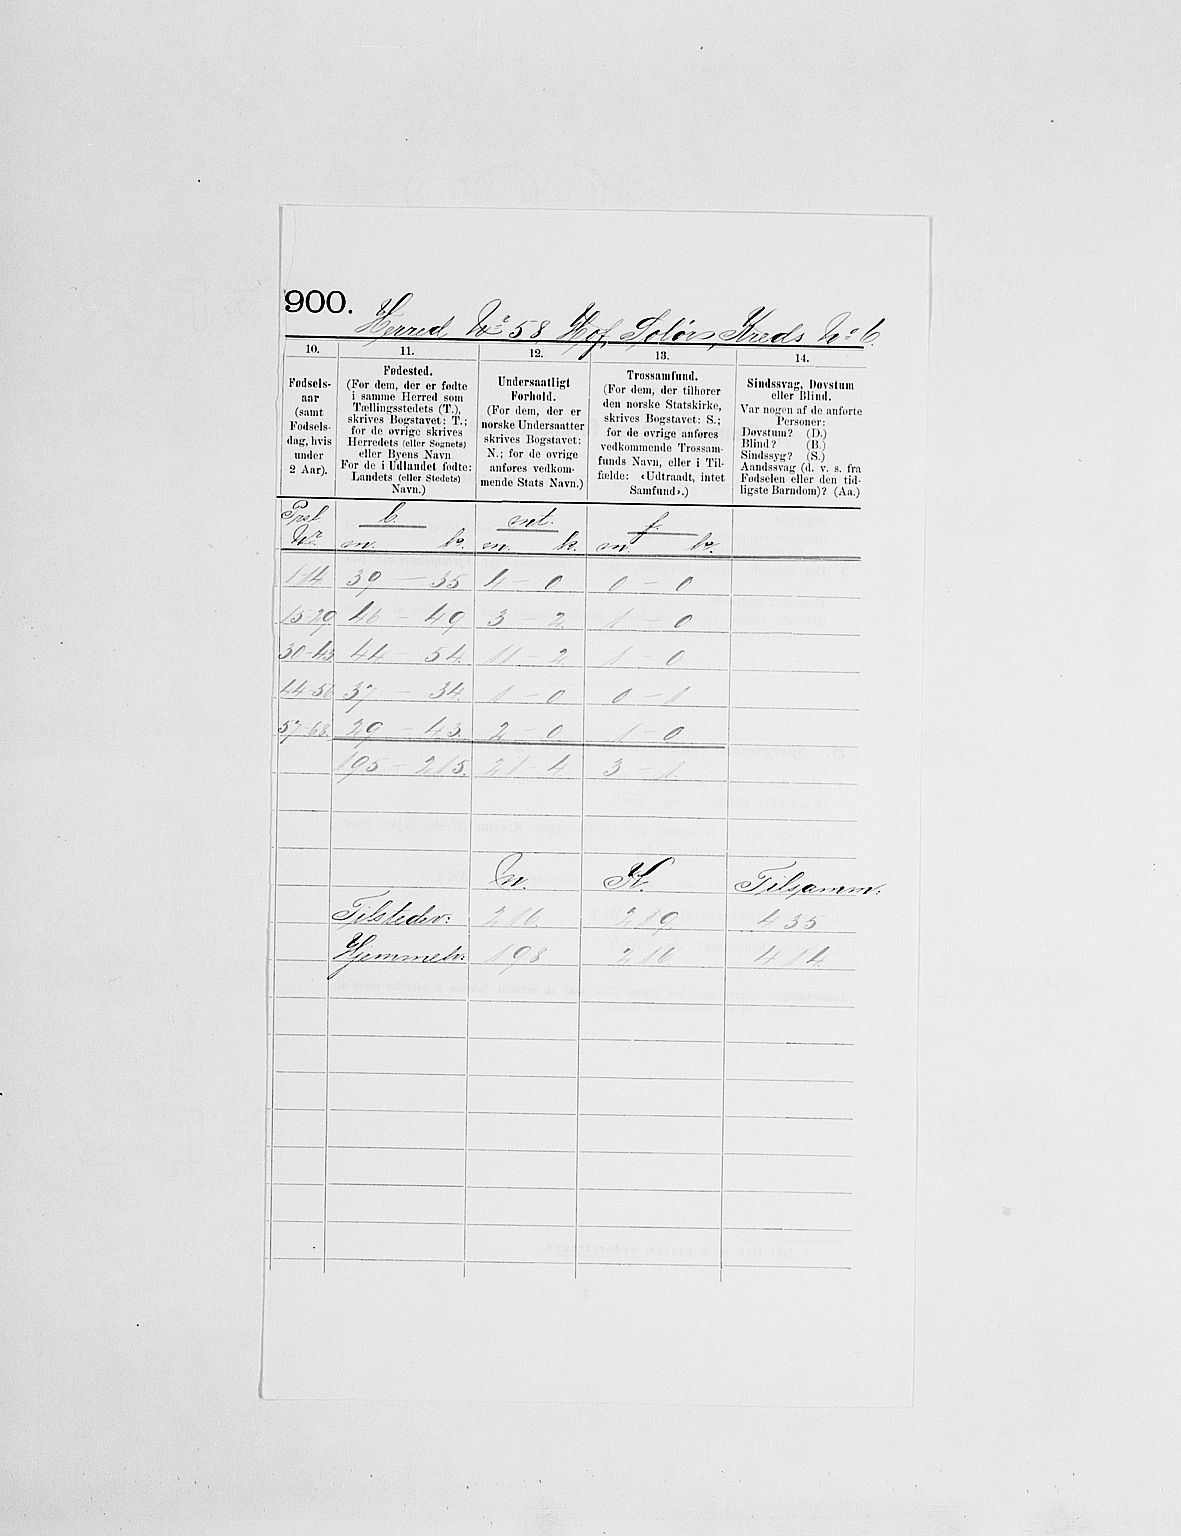 900.
Herred No 58 Hof, Solørs, Kreds No 6.
10.
11.
12.
13.
14.
Fødsels-
aar
(samt
Fødsels-
dag, hvis
under
2 Aar).
Fødested.
(For dem, der er fødte
i samme Herred som
Tællingsstedets (T.),
skrives Bogstavet: T.;
for de øvrige skrives
Herredets (eller Sognets)
eller Byens Navn.
For de i Udlandet fødte:
Landets (eller Stedets)
Navn.)
Undersaatligt
Forhold.
(For dem, der er
norske Undersaatter
skrives Bogstavet:
N.; for de øvrige
anføres vedkom-
mende Stats Navn.)
Trossamfund.
(For dem, der tilhører
den norske Statskirke,
skrives Bogstavet: S.;
for de øvrige anføres
vedkommende Trossam-
funds Navn, eller i Til-
fælde: «Udtraadt, intet
Samfund».)
Sindssvag, Døvstum
eller Blind.
Var nogen af de anførte
Personer:
Døvstum? (D.)
Blind? (B.)
Sindssyg? (S.)
Aandssvag (d. v. s. fra
Fødselen eller den tid-
ligste Barndom)? (Aa.)
Psl. b. mt. f.
No m. k. m. k. m. k.
1-14 39 — 35 4 — 0 0 — 0
15-29 46 — 49 3 — 2 1 — 0
30-43 44 — 54 11 — 2 1 — 0
44-56 37 — 34 1 — 0 0 — 1
57-68 29 — 43 2 — 0 1 — 0
195 — 215 21 — 4 3 — 1
M. K. Tilsamm:
Tilstedev: 216 219 435
Hjemmeh: 198 216 414